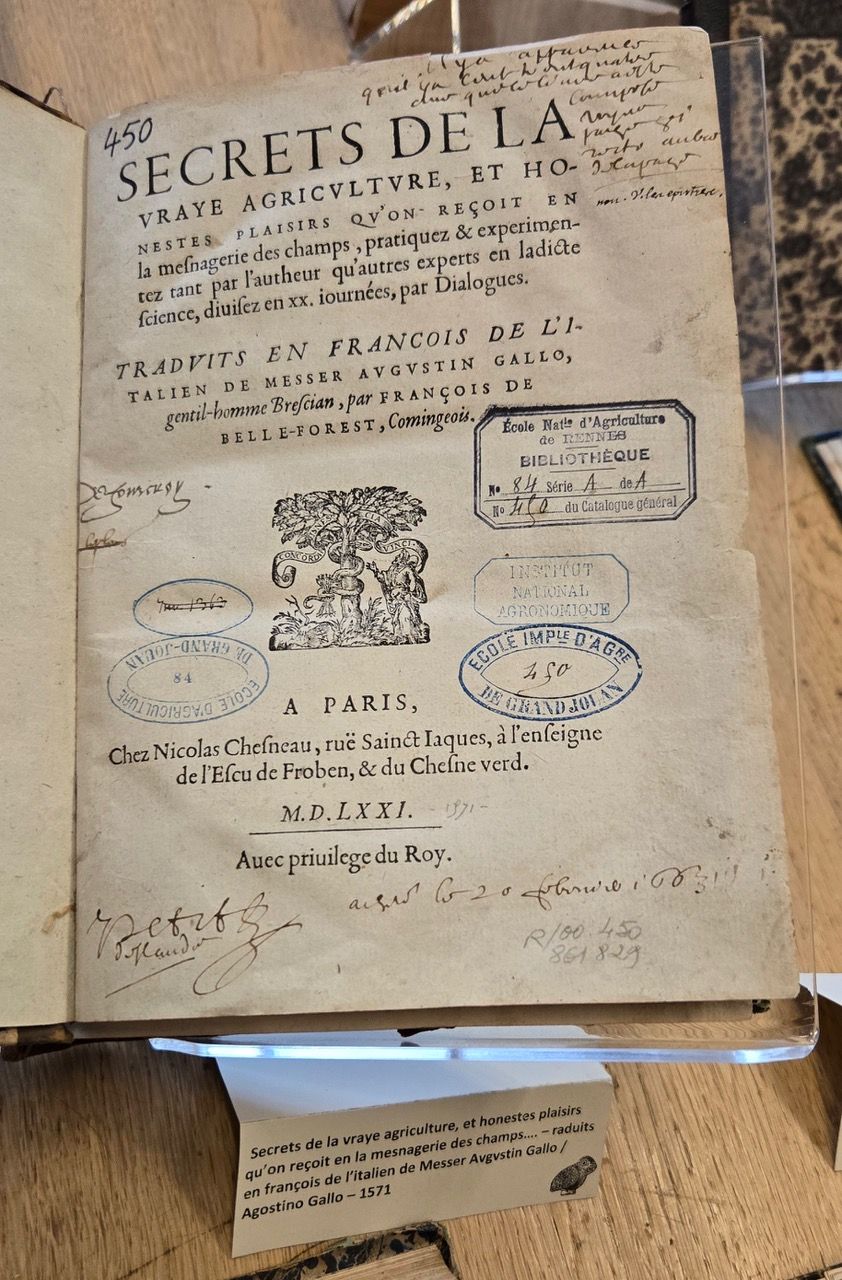 450
SECRETS DE LA
VRAYE AGRICVLTVRE, ET HO-
NESTES PLAISIRS QV'ON REÇOIT EN
la meſnagerie des champs, pratiquez & experimen-
tez tant par l'autheur qu'autres experts en ladicte
ſcience, diuiſez en xx. iournées, par Dialogues.
TRADVITS EN FRANCOIS DE L'I-
TALIEN DE MESSER AVGVSTIN GALLO,
gentil-homme Breſcian, par FRANÇOIS DE
BELLE-FOREST, Comingeois.
École Natle d'Agriculture
de RENNES
BIBLIOTHÈQUE
No 84 Série A de A
No 450 du Catalogue général
CONCORD
VINCI
INSTITUT
NATIONAL
AGRONOMIQUE
ECOLE D'AGRICULTURE
DE GRAND-JOUAN
84
ECOLE IMPLE D'AGRE
450
DE GRAND JOUAN
A PARIS,
Chez Nicolas Cheſneau, ruë Sainct Iaques, à l'enſeigne
de l'Eſcu de Froben, & du Cheſne verd.
M.D.LXXI. -1571-
Auec priuilege du Roy.
le 20
R/00.450
861 829
Secrets de la vraye agriculture, et honestes plaisirs
qu'on reçoit en la mesnagerie des champs.... – raduits
en françois de l'italien de Messer Avgvstin Gallo /
Agostino Gallo – 1571